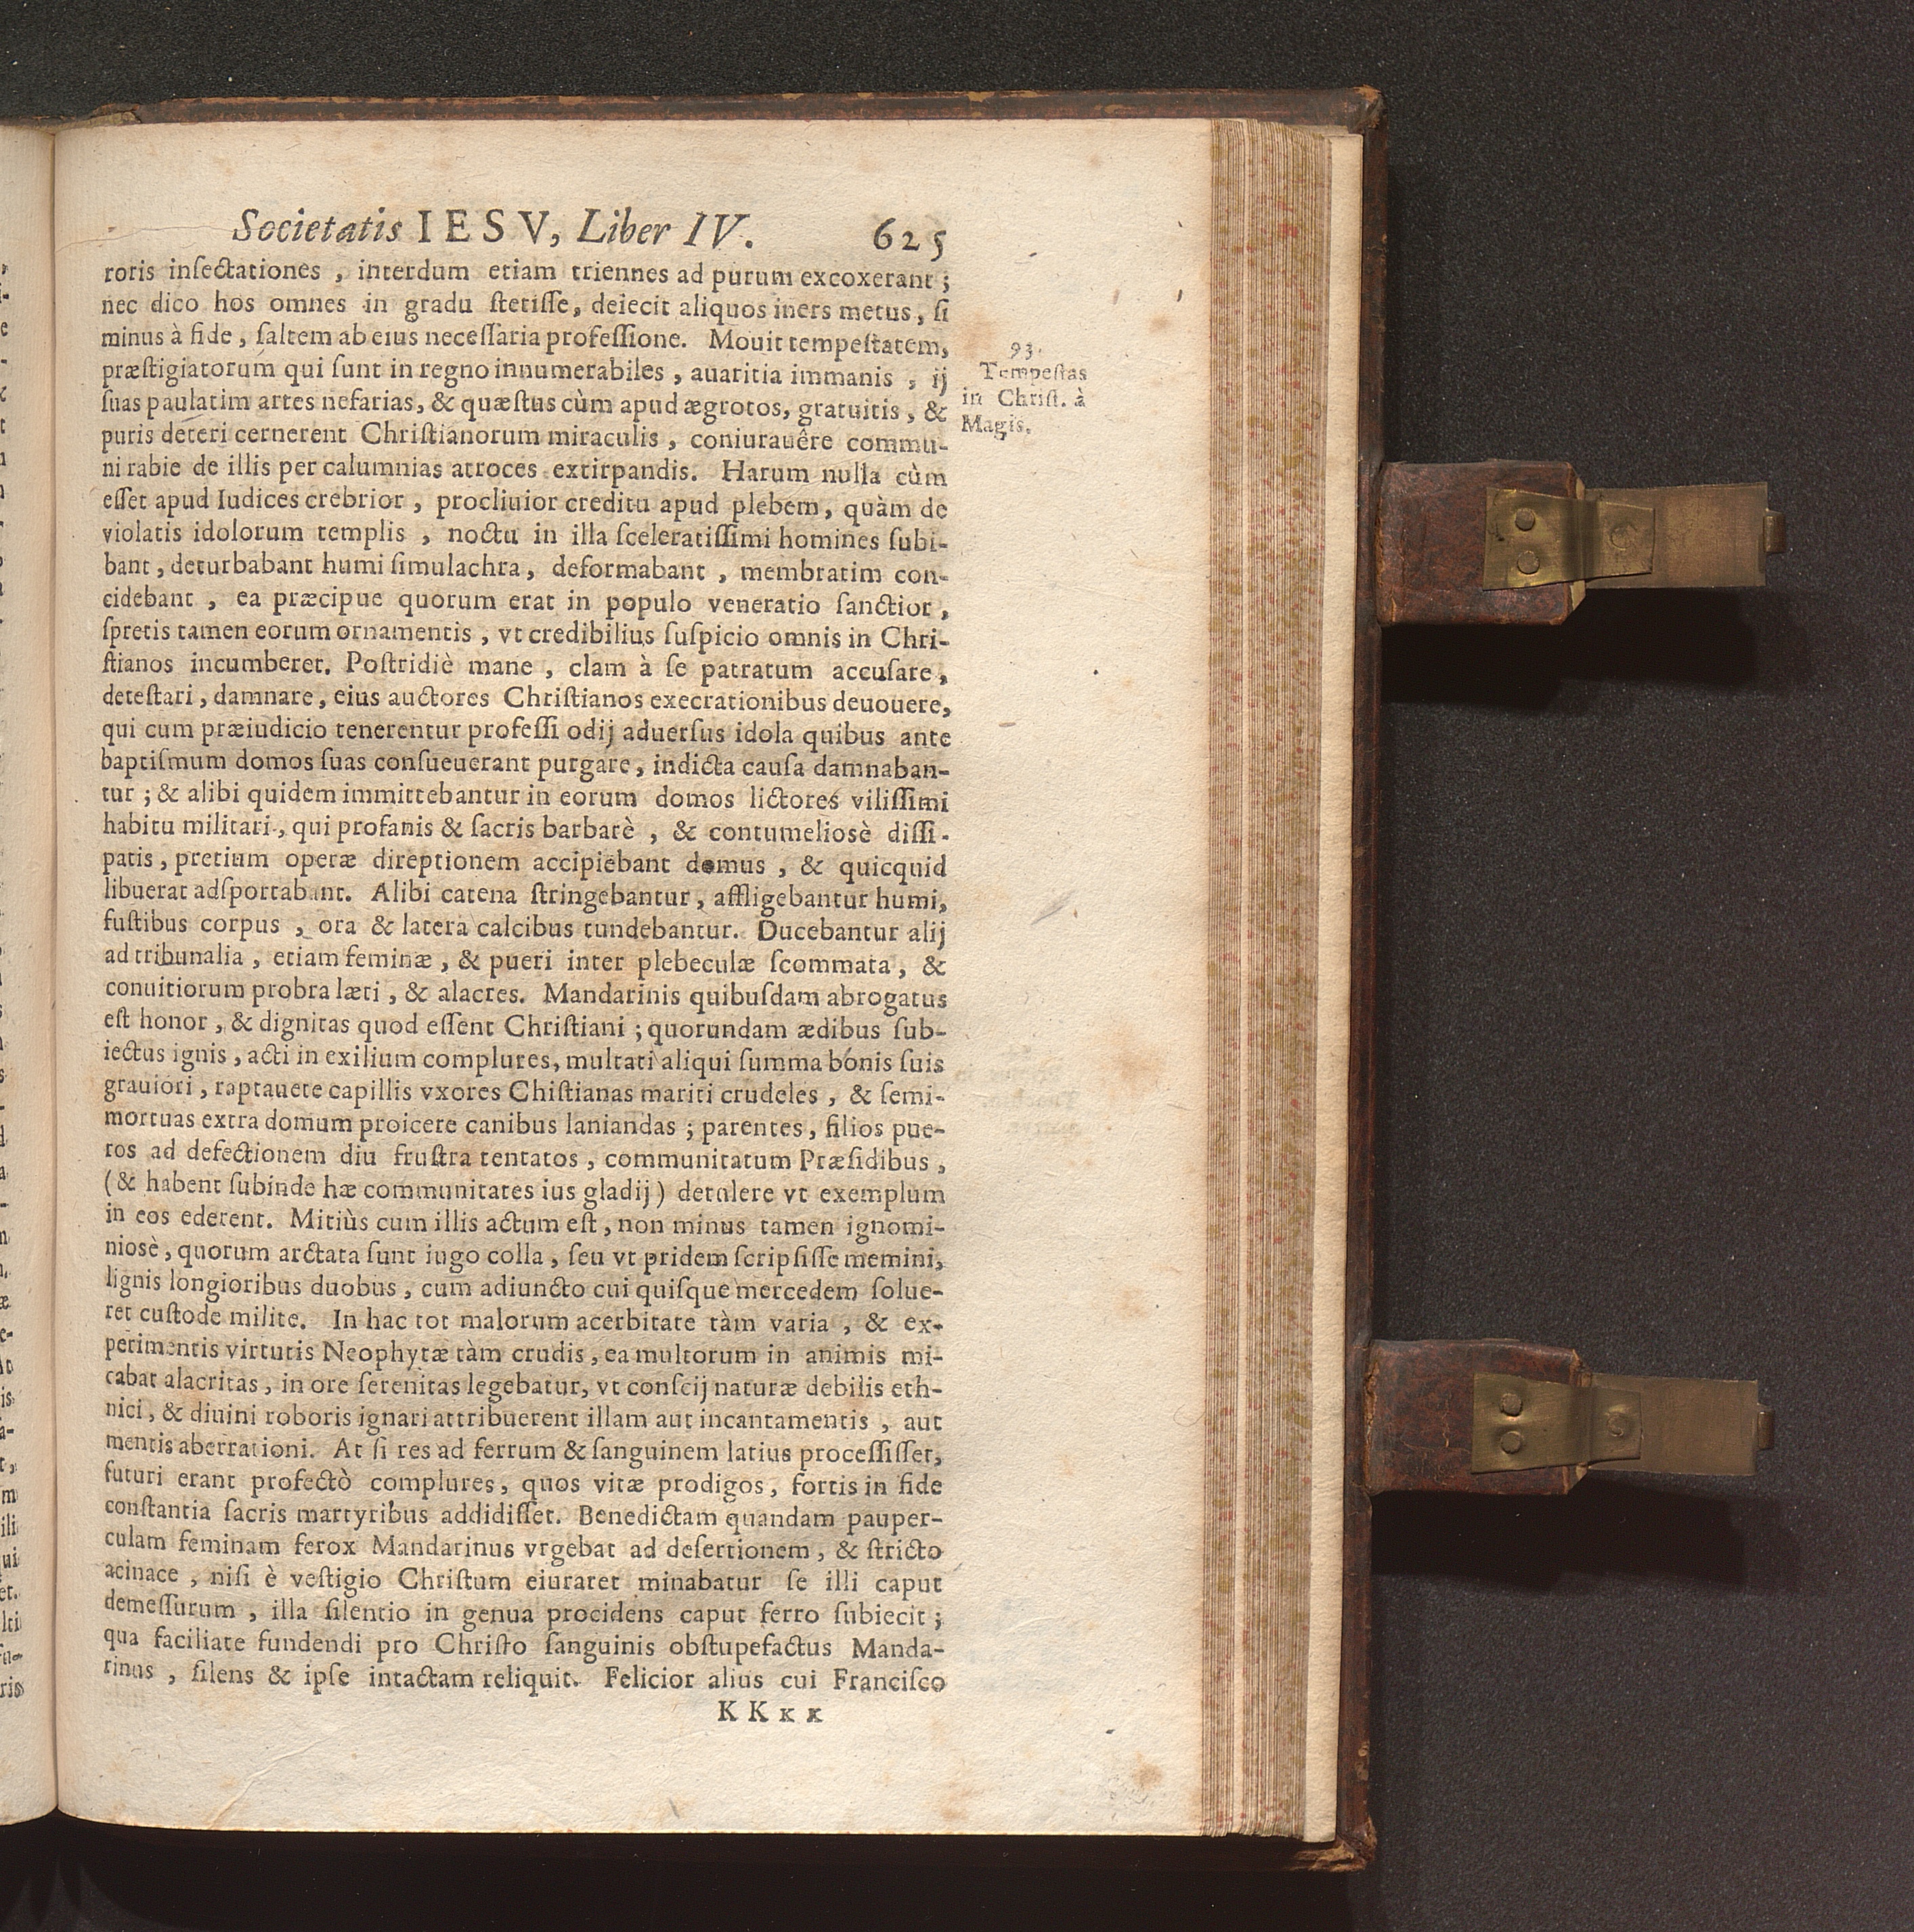 Societatis IESV, Liber IV. 625
roris inſectationes , interdum etiam triennes ad purum excoxerant ;
nec dico hos omnes in gradu ſtetiſſe, deiecit aliquos iners metus, ſi
minus à fide, ſaltem ab eius neceſſaria profeſſione. Mouit tempeſtatem,
præſtigiatorum qui ſunt in regno innumerabiles , auaritia immanis , ij
ſuas paulatim artes nefarias, & quæſtus cùm apud ægrotos, gratuitis, &
puris deteri cernerent Chriſtianorum miraculis , coniurauêre commu-
ni rabie de illis per calumnias atroces extirpandis. Harum nulla cùm
eſſet apud Iudices crebrior , procliuior creditu apud plebem, quàm de
violatis idolorum templis , noctu in illa ſceleratiſſimi homines ſubi-
bant, deturbabant humi ſimulachra, deformabant , membratim con-
cidebant , ea præcipue quorum erat in populo veneratio ſanctior,
ſpretis tamen eorum ornamentis , vt credibilius ſuſpicio omnis in Chri-
ſtianos incumberet. Poſtridiè mane , clam à ſe patratum accuſare,
deteſtari, damnare, eius auctores Chriſtianos execrationibus deuouere,
qui cum præiudicio tenerentur profeſſi odij aduerſus idola quibus ante
baptiſmum domos ſuas conſueuerant purgare, indicta cauſa damnaban-
tur ; & alibi quidem immittebantur in eorum domos lictores viliſſimi
habitu militari, qui profanis & ſacris barbarè , & contumelioſè diſſi-
patis, pretium operæ direptionem accipiebant domus , & quicquid
libuerat adſportabant. Alibi catena ſtringebantur, affligebantur humi,
fuſtibus corpus , ora & latera calcibus tundebantur. Ducebantur alij
ad tribunalia , etiam feminæ , & pueri inter plebeculæ ſcommata, &
conuitiorum probra læti , & alacres. Mandarinis quibuſdam abrogatus
eſt honor, & dignitas quod eſſent Chriſtiani ; quorundam ædibus ſub-
iectus ignis , acti in exilium complures, multati aliqui ſumma bonis ſuis
grauiori , raptauere capillis vxores Chiſtianas mariti crudeles , & ſemi-
mortuas extra domum proicere canibus laniandas ; parentes, filios pue-
ros ad defectionem diu fruſtra tentatos , communitatum Præſidibus ,
(& habent ſubinde hæ communitates ius gladij) detulere vt exemplum
in eos ederent. Mitiùs cum illis actum eſt , non minus tamen ignomi-
nioſè, quorum arctata ſunt iugo colla , ſeu vt pridem ſcripſiſſe memini,
lignis longioribus duobus , cum adiuncto cui quiſque mercedem ſolue-
ret cuſtode milite. In hac tot malorum acerbitate tàm varia , & ex-
perimentis virtutis Neophytæ tàm crudis , ea multorum in animis mi-
cabat alacritas, in ore ſerenitas legebatur, vt conſcij naturæ debilis eth-
nici, & diuini roboris ignari attribuerent illam aut incantamentis , aut
mentis aberrationi. At ſi res ad ferrum & ſanguinem latius proceſſiſſet,
futuri erant profectò complures, quos vitæ prodigos, fortis in fide
conſtantia ſacris martyribus addidiſſet. Benedictam quandam pauper-
culam feminam ferox Mandarinus vrgebat ad deſertionem, & ſtricto
acinace , niſi è veſtigio Chriſtum eiuraret minabatur ſe illi caput
demeſſurum , illa ſilentio in genua procidens caput ferro ſubiecit ;
qua faciliate fundendi pro Chriſto ſanguinis obſtupefactus Manda-
rinus , ſilens & ipſe intactam reliquit. Felicior alius cui Franciſco
KKKK
93.
Tempeſtas
in Chriſt. à
Magis.